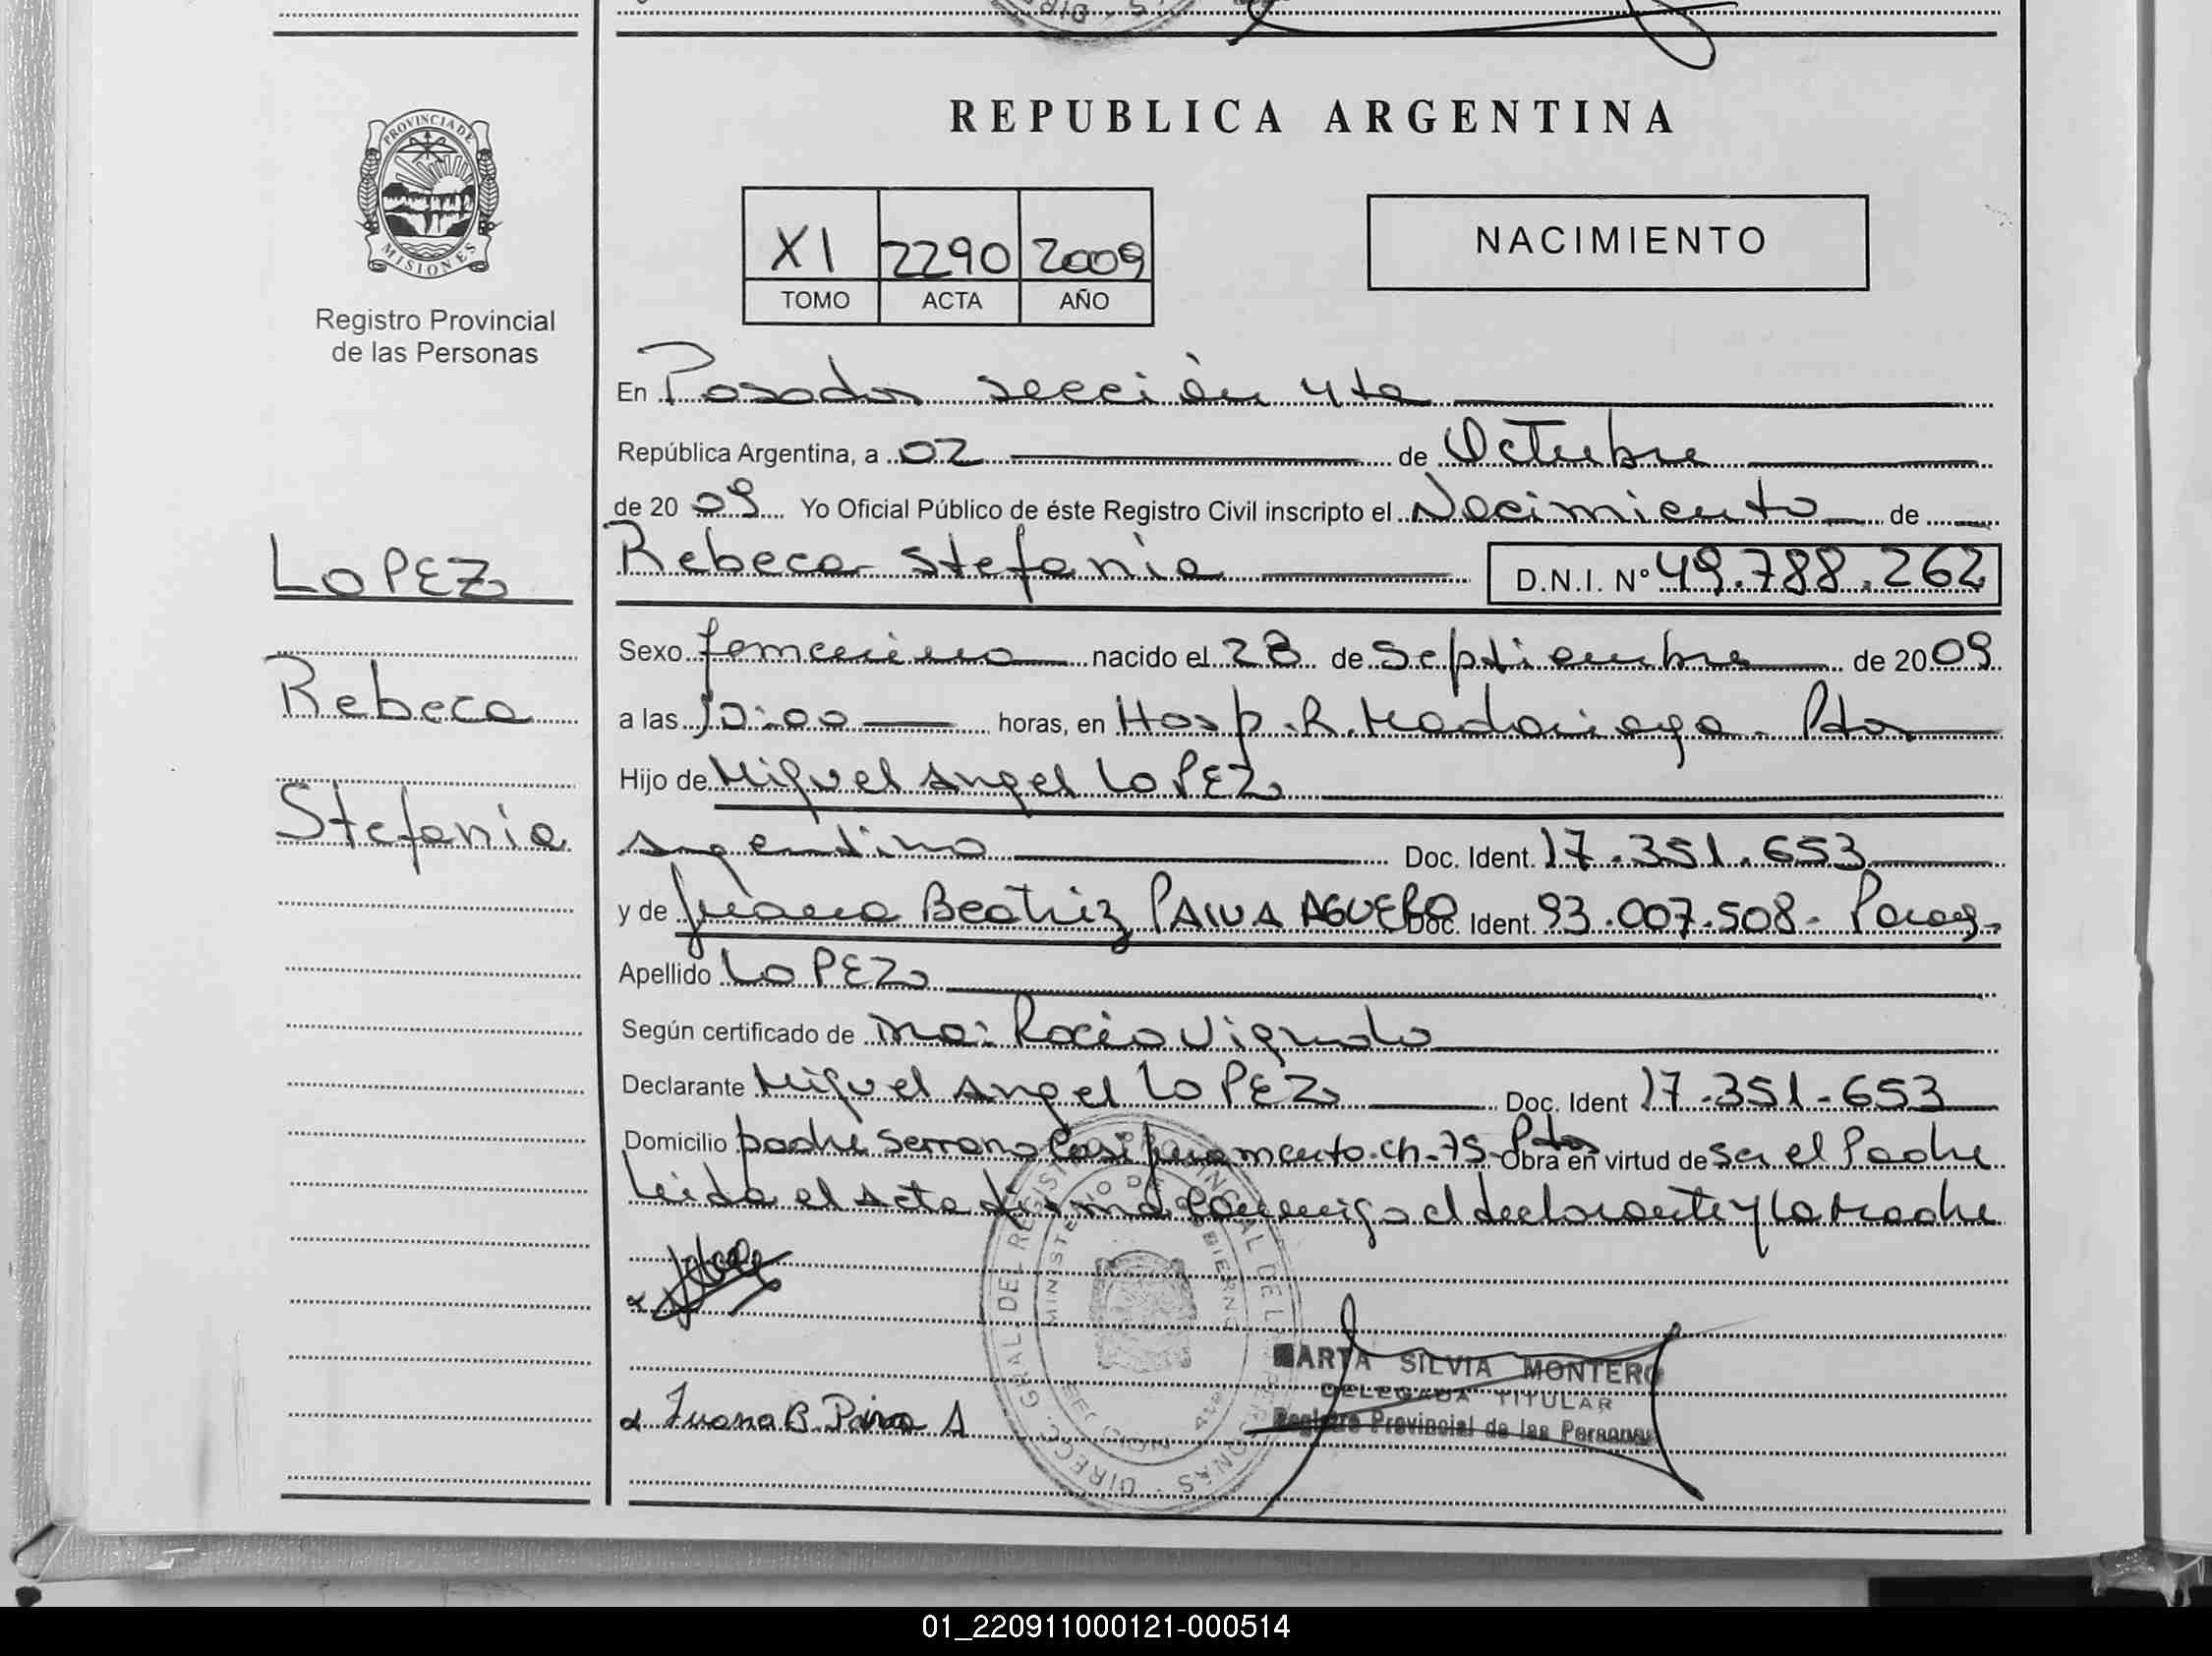 REPUBLICA ARGENTINA
PROVINCIA DE
MISIONES
Registro Provincial
de las Personas
XI 2290 2009
TOMO ACTA AÑO
NACIMIENTO
En Posadas sección 4ta
República Argentina, a 02 de Octubre
de 20 09 Yo Oficial Público de éste Registro Civil inscripto el Nacimiento de
LOPEZ
Rebeca
Stefania
Rebeca Stefania D.N.I. Nº 49.788.262
Sexo femenino nacido el 28 de Septiembre de 20 09
a las 10:00 horas, en Hosp. R. Madariaga. Pdas
Hijo de Miguel Angel LOPEZ
Argentino Doc. Ident. 17.351.653
y de Juana Beatriz PAIVA AGUERO Doc. Ident. 93.007.508 - Parag.
Apellido LOPEZ
Según certificado de Ma: Rocío
Declarante Miguel Angel LOPEZ Doc. Ident 17.351.653
Domicilio padre Serrano casi ch. 75 - Pdas Obra en virtud de ser el Padre
Leida el Acta firma conmigo el declarante y la Madre
Juana B. Paiva A
MARTA SILVIA MONTERO
DELEGADA TITULAR
Registro Provincial de las Personas
01_220911000121-000514